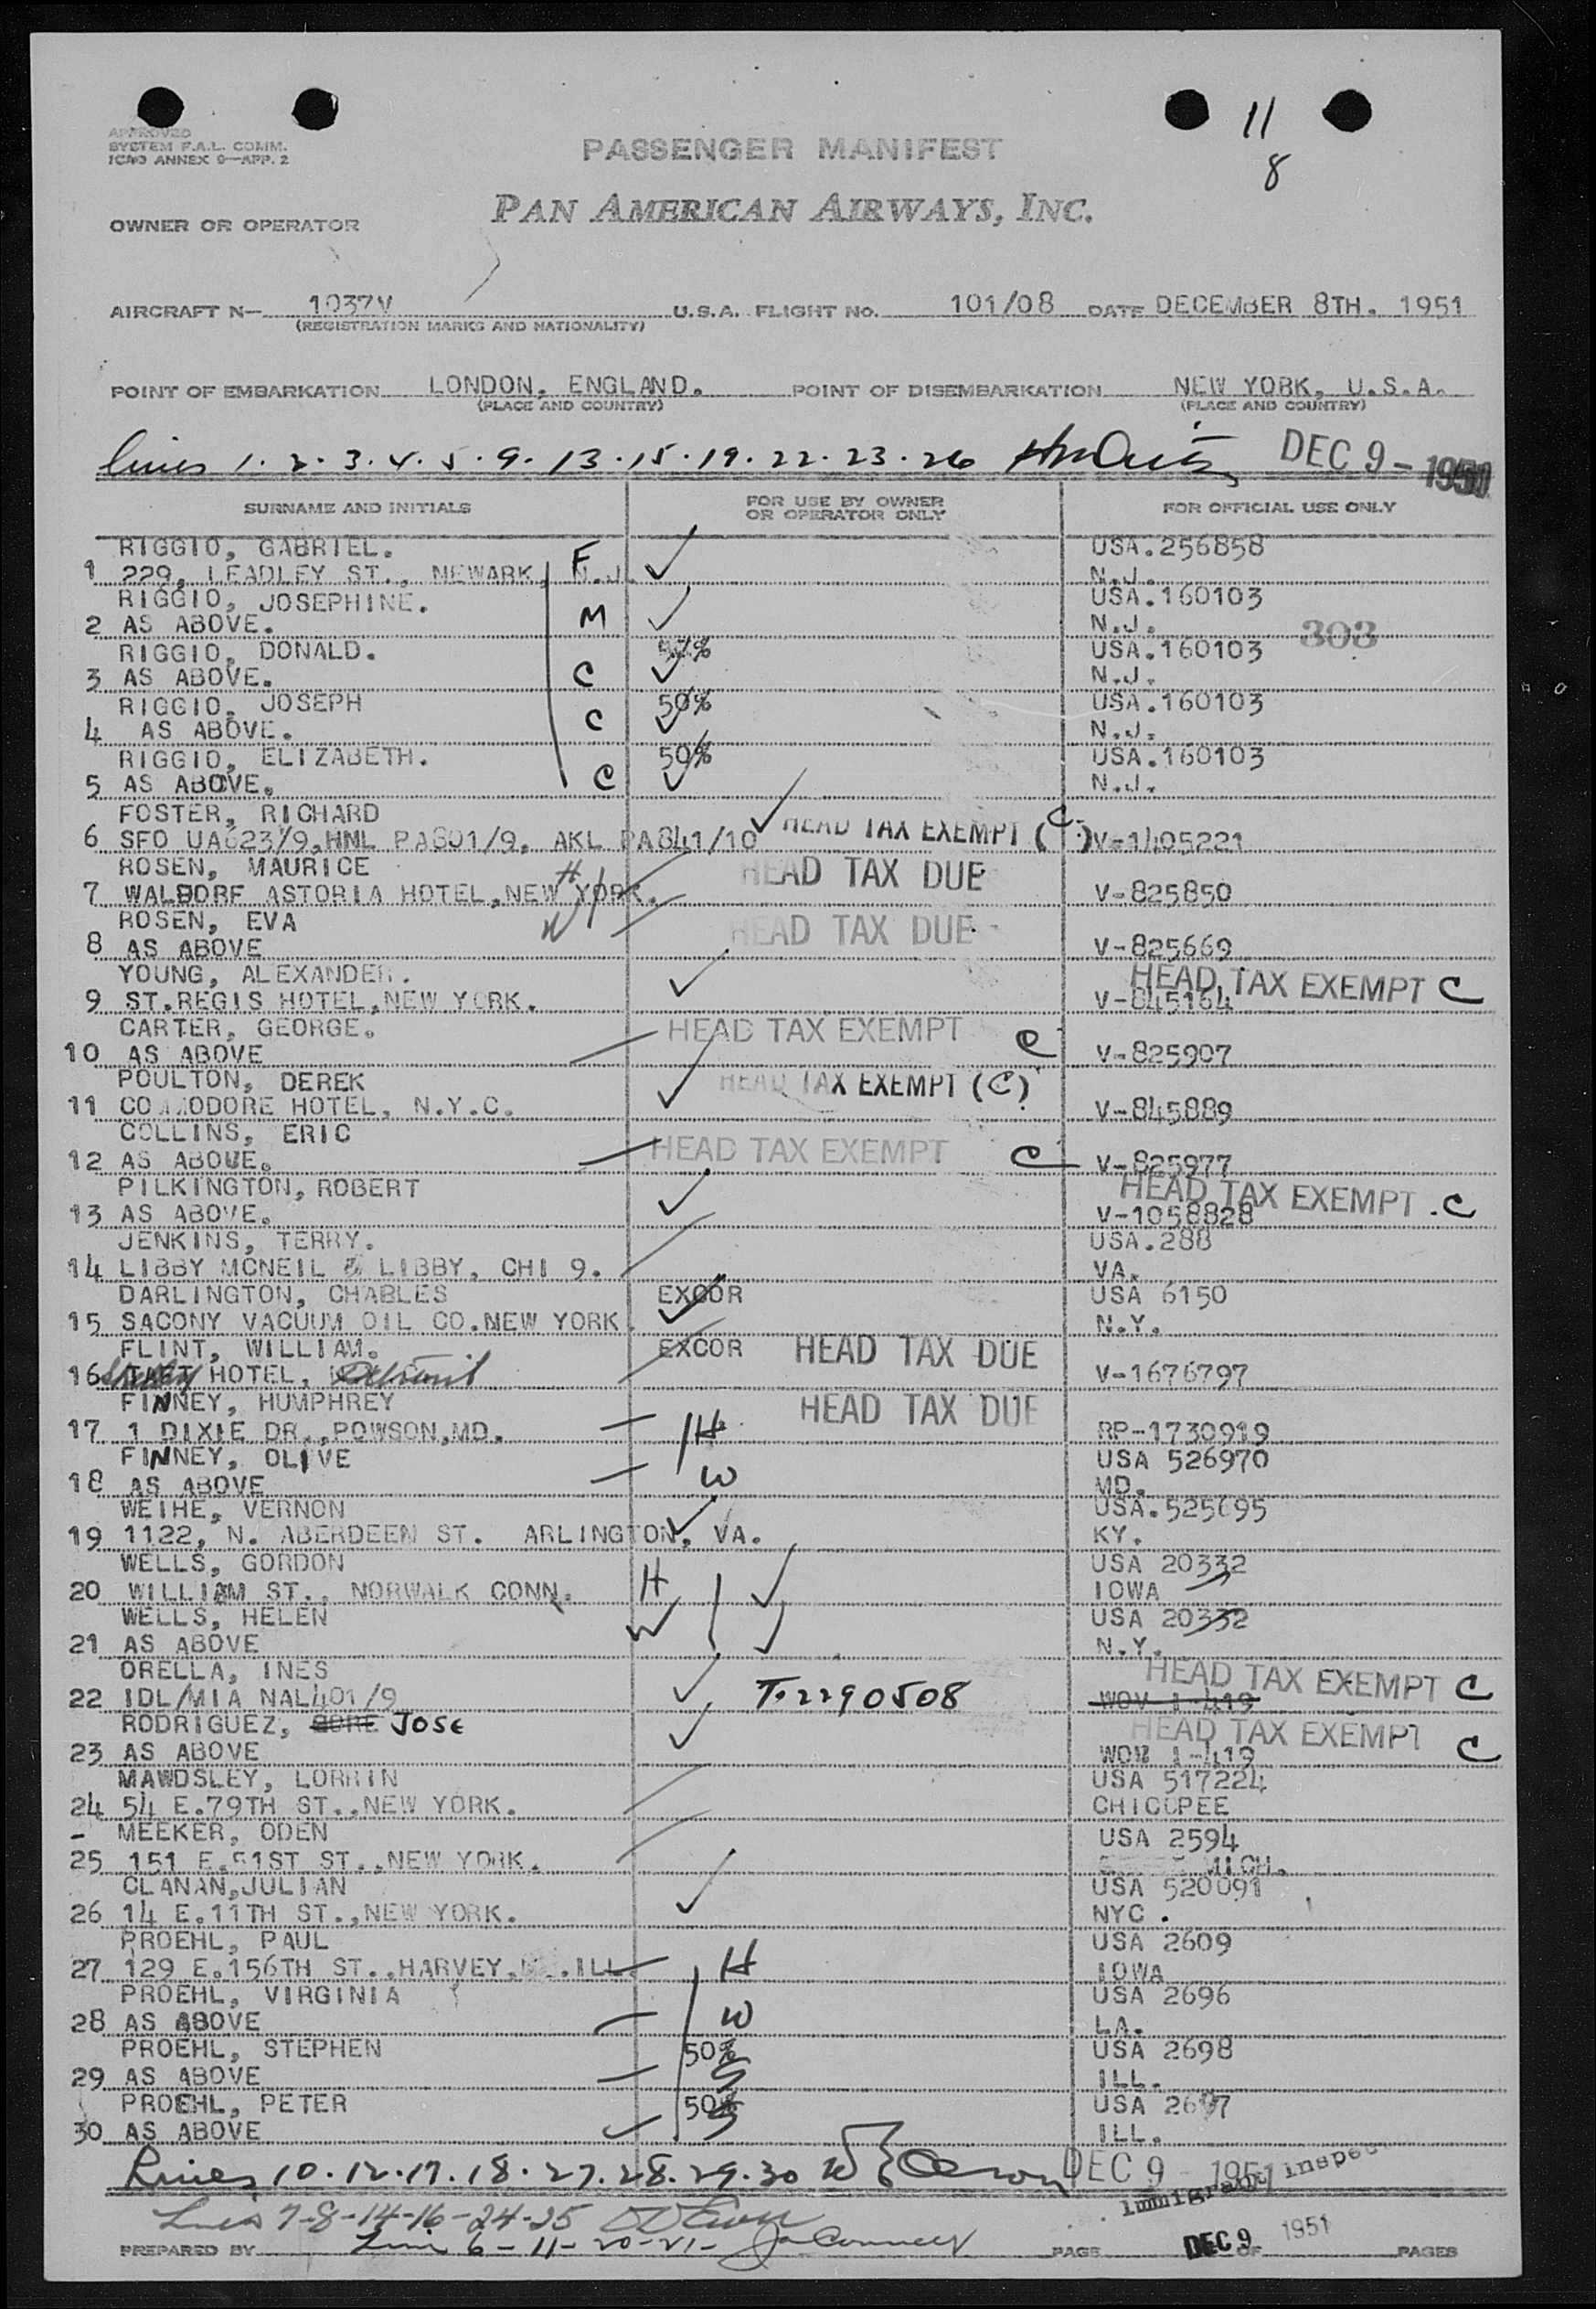 11
8
APPROVED
SYSTEM F.A.L. COMM.
ICAO ANNEX 9—APP. 2
PASSENGER MANIFEST
OWNER OR OPERATOR
PAN AMERICAN AIRWAYS, INC.
AIRCRAFT N— 1037V U.S.A. FLIGHT NO. 101/08 DATE DECEMBER 8TH. 1951
(REGISTRATION MARKS AND NATIONALITY)
POINT OF EMBARKATION LONDON, ENGLAND. POINT OF DISEMBARKATION NEW YORK, U.S.A.
(PLACE AND COUNTRY) (PLACE AND COUNTRY)
Lines 1. 2. 3. 4. 5. 9. 13. 15. 19. 22. 23. 26 DEC 9 - 1951
SURNAME AND INITIALS FOR USE BY OWNER OR OPERATOR ONLY FOR OFFICIAL USE ONLY
RIGGIO, GABRIEL. USA.256858
1 229, LEADLEY ST., NEWARK, N.J. F N.J.
RIGGIO, JOSEPHINE. USA.160103
2 AS ABOVE. M N.J. 303
RIGGIO, DONALD. 50% USA.160103
3 AS ABOVE. C N.J.
RIGGIO, JOSEPH 50% USA.160103
4 AS ABOVE. C N.J.
RIGGIO, ELIZABETH. 50% USA.160103
5 AS ABOVE. C N.J.
FOSTER, RICHARD
6 SFO UA623/9, HNL PA801/9, AKL PA841/10 HEAD TAX EXEMPT (C) V-1405221
ROSEN, MAURICE HEAD TAX DUE
7 WALDORF ASTORIA HOTEL, NEW YORK. H V-825850
ROSEN, EVA HEAD TAX DUE
8 AS ABOVE W V-825669
YOUNG, ALEXANDER. HEAD TAX EXEMPT C
9 ST.REGIS HOTEL, NEW YORK. V-845164
CARTER, GEORGE. HEAD TAX EXEMPT C
10 AS ABOVE V-825907
POULTON, DEREK HEAD TAX EXEMPT (C)
11 COMMODORE HOTEL, N.Y.C. V-845889
COLLINS, ERIC HEAD TAX EXEMPT C
12 AS ABOUE. V-825977
PILKINGTON, ROBERT HEAD TAX EXEMPT C
13 AS ABOVE. V-1058828
JENKINS, TERRY. USA.288
14 LIBBY MCNEIL & LIBBY, CHI 9. VA.
DARLINGTON, CHARLES EXCOR USA 6150
15 SACONY VACUUM OIL CO.NEW YORK. N.Y.
FLINT, WILLIAM. EXCOR HEAD TAX DUE
16 HOTEL, Detroit V-1676797
FINNEY, HUMPHREY HEAD TAX DUE
17 1 DIXIE DR., POWSON, MD. H RP-1730919
FINNEY, OLIVE USA 526970
18 AS ABOVE W MD.
WEIHE, VERNON USA.525695
19 1122, N. ABERDEEN ST. ARLINGTON, VA. KY.
WELLS, GORDON USA 20332
20 WILLIAM ST., NORWALK CONN. H IOWA
WELLS, HELEN USA 20332
21 AS ABOVE W N.Y.
ORELLA, INES HEAD TAX EXEMPT C
22 IDL/MIA NAL401/9 T-2290508 WOV 1-419
RODRIGUEZ, JOSE HEAD TAX EXEMPT C
23 AS ABOVE WOV 1-419
MAWDSLEY, LORRIN USA 517224
24 54 E.79TH ST.,NEW YORK. CHICOPEE
MEEKER, ODEN USA 2594
25 151 E.51ST ST.,NEW YORK. MICH.
CLANAN,JULIAN USA 520091
26 14 E.11TH ST.,NEW YORK. NYC.
PROEHL, PAUL USA 2609
27 129 E.156TH ST.,HARVEY, ILL. H IOWA
PROEHL, VIRGINIA USA 2696
28 AS ABOVE W LA.
PROEHL, STEPHEN 50% USA 2698
29 AS ABOVE S ILL.
PROEHL, PETER 50% USA 2697
30 AS ABOVE S ILL.
Lines 10. 12. 17. 18. 27. 28. 29. 30 DEC 9 1951
Immigrant Inspec
Lines 7-8-14-16-24-25
PREPARED BY Line 6-11-20-21- PAGE DEC 9 OF 1951 PAGES